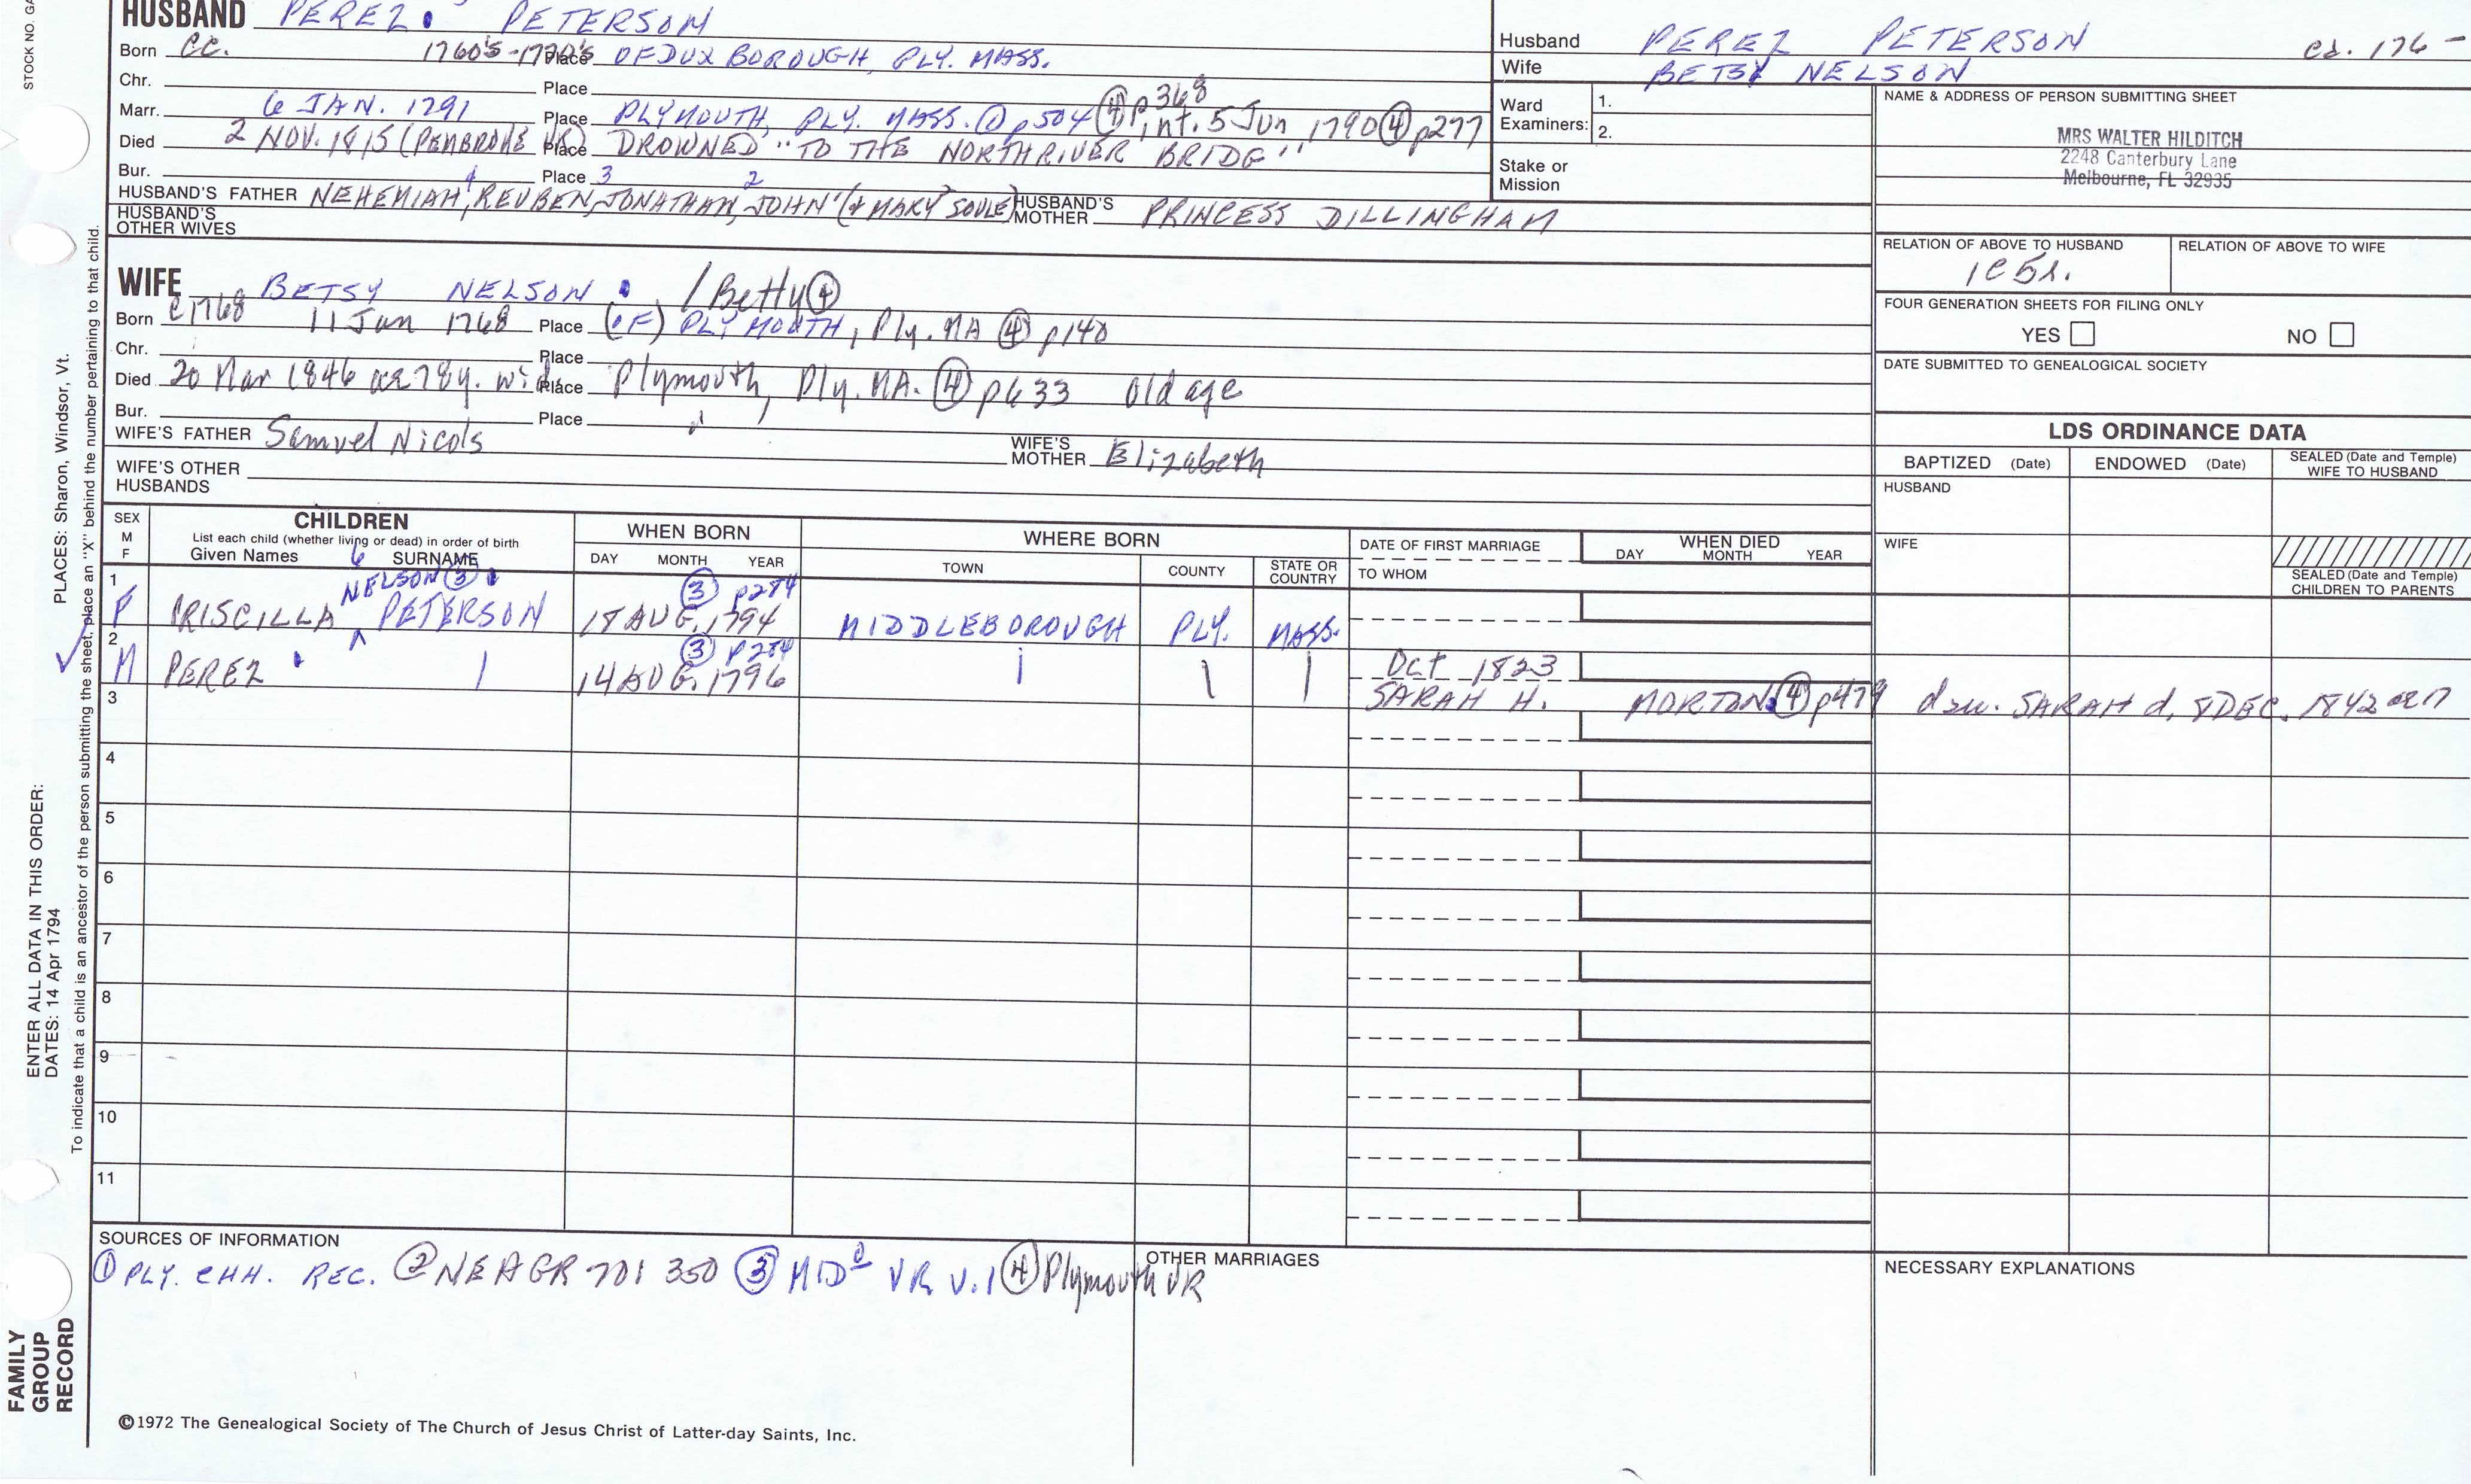 STOCK NO. GA
HUSBAND PEREZ PETERSON
Born CC. 1760'S-1770'S Place OF DUXBOROUGH, PLY. MASS.
Chr. Place
Marr. 6 JAN. 1791 Place PLYMOUTH, PLY. MASS. ① p504 ④ p368, int. 5 Jun 1790 ④ p277
Died 2 NOV. 1815 (PEMBROKE VR) Place DROWNED "TO THE NORTH RIVER BRIDG"
Bur. Place
HUSBAND'S FATHER NEHEMIAH4, REUBEN3, JONATHAN2, JOHN1 (+ MARY SOULE) HUSBAND'S MOTHER PRINCESS DILLINGHAM
HUSBAND'S OTHER WIVES
Husband PEREZ PETERSON cd. 176-
Wife BETSY NELSON
Ward Examiners: 1.
2.
Stake or Mission
NAME & ADDRESS OF PERSON SUBMITTING SHEET
MRS WALTER HILDITCH
2248 Canterbury Lane
Melbourne, FL 32935
RELATION OF ABOVE TO HUSBAND RELATION OF ABOVE TO WIFE
1C5R.
FOUR GENERATION SHEETS FOR FILING ONLY
YES NO
DATE SUBMITTED TO GENEALOGICAL SOCIETY
WIFE BETSY NELSON /Betty ④
Born c1768 11 Jan 1768 Place (OF) PLYMOUTH, Ply. MA ④ p140
Chr. Place
Died 20 Mar 1846 ae 78y. wid. Place Plymouth, Ply. MA. ④ p633 old age
Bur. Place
WIFE'S FATHER Samuel Nicols WIFE'S MOTHER Elizabeth
WIFE'S OTHER HUSBANDS
LDS ORDINANCE DATA
BAPTIZED (Date) ENDOWED (Date) SEALED (Date and Temple) WIFE TO HUSBAND
HUSBAND
WIFE
SEALED (Date and Temple) CHILDREN TO PARENTS
SEX M F
CHILDREN
List each child (whether living or dead) in order of birth
Given Names SURNAME
WHEN BORN
DAY MONTH YEAR
WHERE BORN
TOWN COUNTY STATE OR COUNTRY
DATE OF FIRST MARRIAGE
TO WHOM
WHEN DIED
DAY MONTH YEAR
6
NELSON ③ ③ p284
1 F PRISCILLA ^ PETERSON 18 AUG. 1794 MIDDLEBOROUGH PLY. MASS.
③ P284
2 M PEREZ 14 AUG. 1796 Oct 1823
SARAH H. MORTON ④ p479 SARAH d. 8 DEC. 1842
3
4
5
6
7
8
9
10
11
SOURCES OF INFORMATION
① PLY. CHH. REC. ② NEHGR 701 350 ③ MIDd VR V.1 ④ Plymouth VR
OTHER MARRIAGES
NECESSARY EXPLANATIONS
©1972 The Genealogical Society of The Church of Jesus Christ of Latter-day Saints, Inc.
PLACES: Sharon, Windsor, Vt.
ENTER ALL DATA IN THIS ORDER:
DATES: 14 Apr 1794
To indicate that a child is an ancestor of the person submitting the sheet, place an "X" behind the number pertaining to that child.
FAMILY
GROUP
RECORD